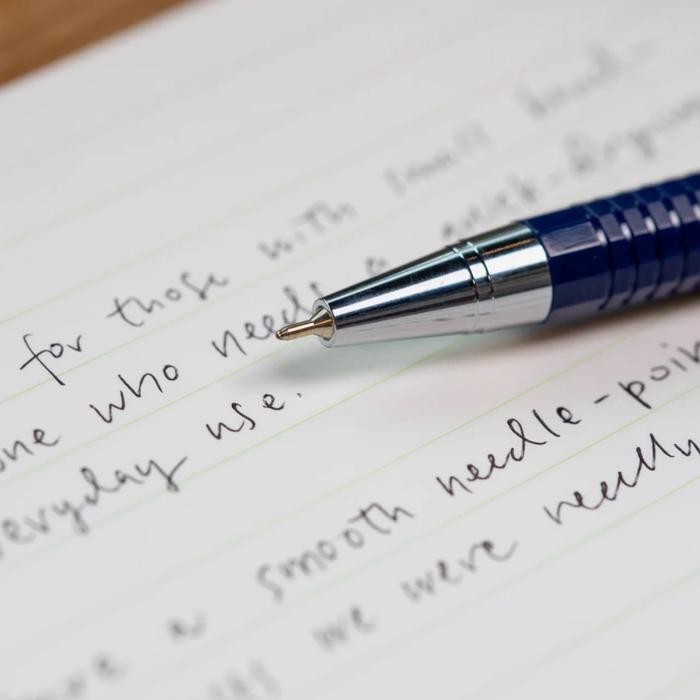 for those with small hand-
one who needs a quick-drying
everyday use.
a smooth needle-poin
we were really